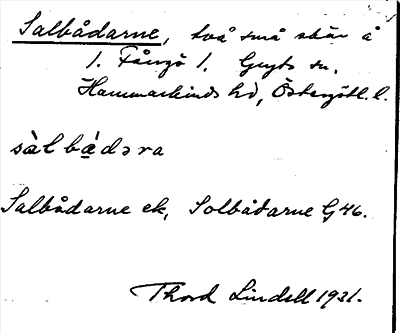 Salbådarne, två små skär å
1. Fångö 1. Gryts sn.
Hammarkinds hd, Östergötl. l.
sàlbå̀dəra
Salbådarne ek, Solbådarne G 46.
Thord Lindell 1931.